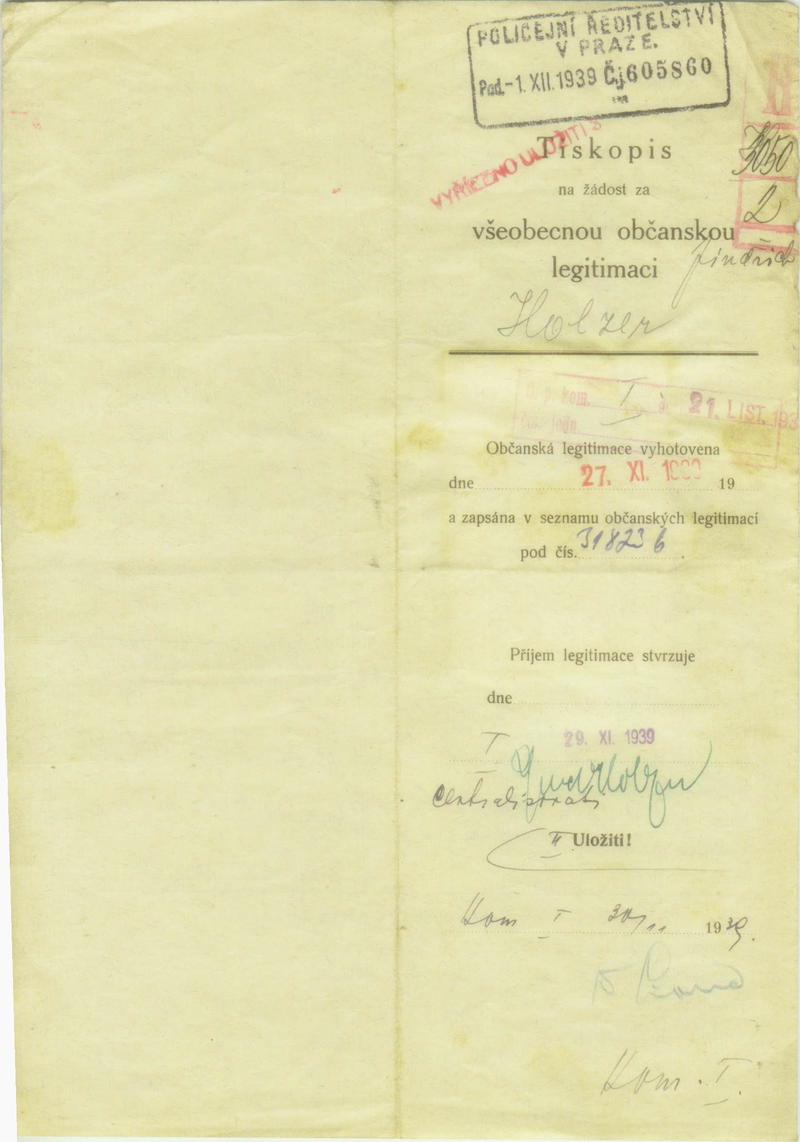 POLICEJNÍ ŘEDITELSTVÍ
V PRAZE.
Pod. -1. XII. 1939 Čj. 605860
VYŘÍZENO ULOŽITI
Tiskopis
3050
na žádost za
2
všeobecnou občanskou
Jindřich
legitimaci
Holzer
kom. I
21. LIST. 193
Občanská legitimace vyhotovena
dne 27. XI. 19 19
a zapsána v seznamu občanských legitimací
pod čís. 318236.
Příjem legitimace stvrzuje
dne
I 29. XI. 1939
Jind Holzer
II Uložiti!
Kom I 30/11 1939.
Kom. I.